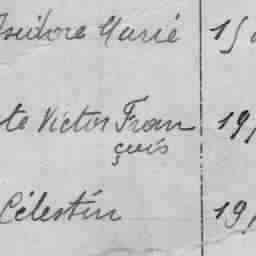 Isidore Marié 15
te Victor Fran 19
çois
Célestin 191